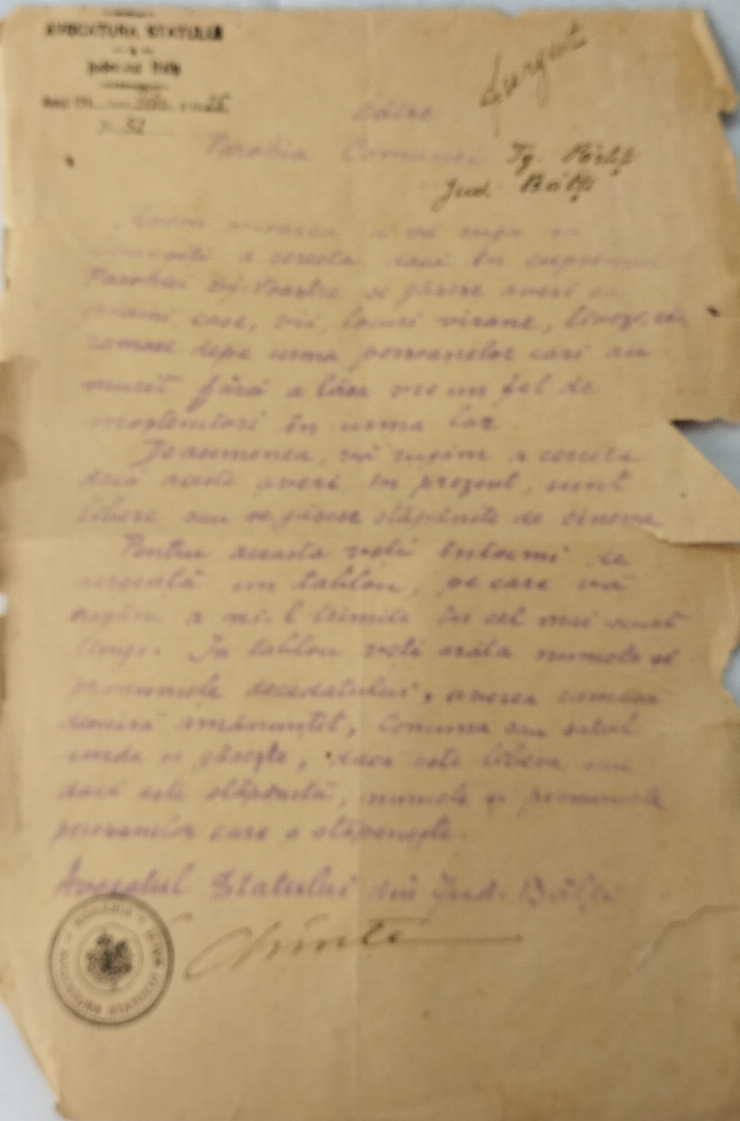 AVOCATURA STATULUI
Urgent
către
Parohia Comunei Tg. Fălești
Jud. Bălți
Avem onoarea a vă ruga
a cerceta dacă în cuprinsul
Parohiei Dv-Voastre se găsesc averi
case, vii, locuri virane, livezi, etc.
ramase depe urma persoanelor cari au
murit fără a lăsa vre un fel de
moștenitori în urma lor.
De asemenea, vă rugăm a cerceta
dacă aceste averi, în prezent, sunt
libere sau se găsesc stăpânite de cineva
Pentru aceasta veți întocmi de
urgență un tablou, pe care vă
rugăm a ni-l trimite în cel mai scurt
timp. In tablou veți arăta numele și
pronumele decedatului, averea ramasă
descrisă amănunțit, Comuna sau satul
unde se găsește, daca este libera sau
dacă este stăpânită, numele și pronumele
persoanelor care o stăpânește.
Avocatul Statului din Jud. Bălți